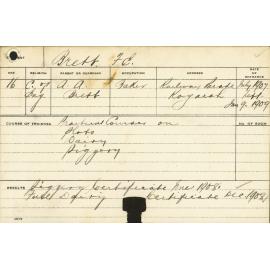 Brett F.C.
AGE RELIGION PARENT OR GUARDIAN OCCUPATION ADDRESS DATE OF ENTRANCE
16 C. of A. A. Baker Railway Parade July 1907
Eng Brett Kogarah
Jan 9. 1909
COURSE OF TRAINING Practical Course on
Dairy
Piggery
RESULTS Piggery Certificate Dec 1908.
Dairy Certificate Dec 1908